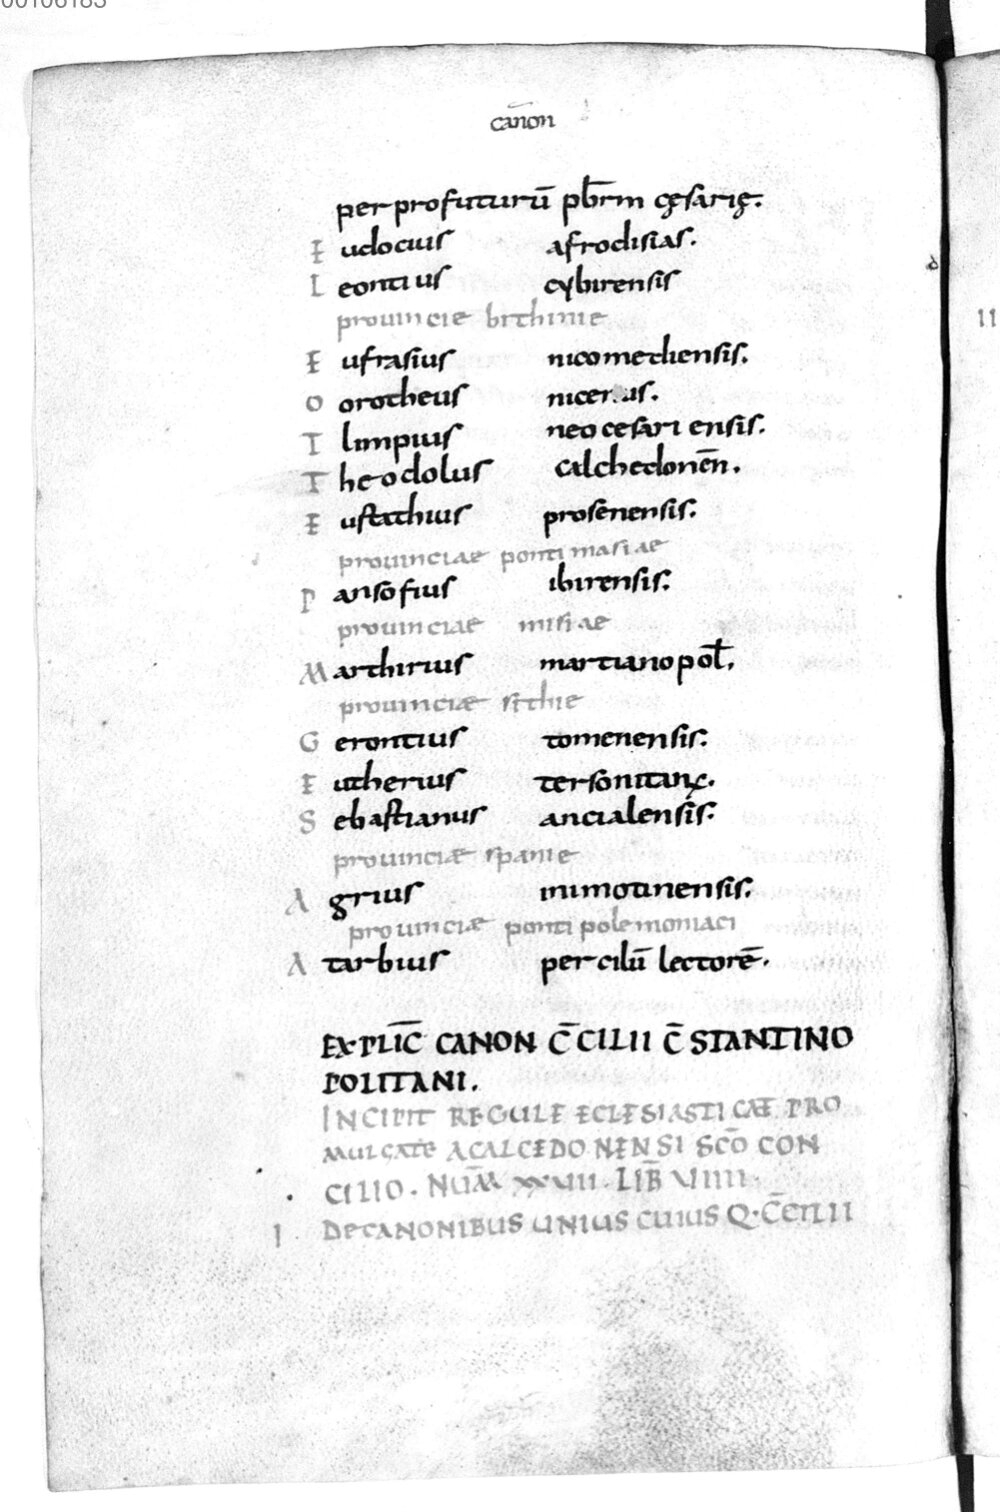 00106183
canōn
per profuturū pb̄rm cęsarię.
E udocius afrodisias.
L eontius cybirensis
prouincie bithinie
E ufrasius nicomediensis.
O orotheus
T limpius neocesariensis.
T heodolus calchedonēn.
E ustathius prosenensis.
prouinciae ponti masiae
P ansofius ibirensis.
prouinciae misiae
M arthirius martianopol̄.
prouinciæ sithie
G erontius tomenensis.
E utherius tersonitanę.
S ebastianus ancialensis.
prouinciæ spanie
A grius inmontinensis.
prouinciæ ponti polemoniaci
A tarbius per cilū lectorē.
EXPLIC̄ CANON C̄CILII C̄STANTINO
POLITANI.
INCIPIT REGULE ECLESIASTICAE PRO
MULGATE A CALCEDONENSI SCŌ CON
CILIO. NUM̄ XXVIII. LIB̄ VIIII
I DE CANONIBUS UNIUS CUIUS Q· C̄CILII
11